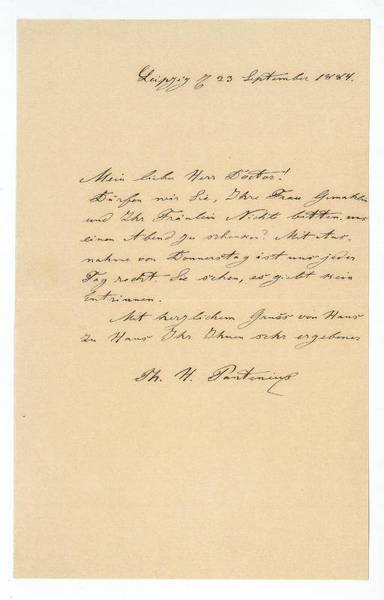 Leipzig 23 September 1884.
Mein lieber Herr Doctor!
Dürfen wir Sie, Ihre Frau Gemahlin
und Ihr Fräulein Nichte bitten, uns
einen Abend zu schenken? Mit Aus-
nahme von Donnerstag ist uns jeder
Tag recht. Sie sehen, es giebt kein
Entrinnen.
Mit herzlichem Gruss von Haus
zu Haus Ihr Ihnen sehr ergebener
Th. H. Pantenius